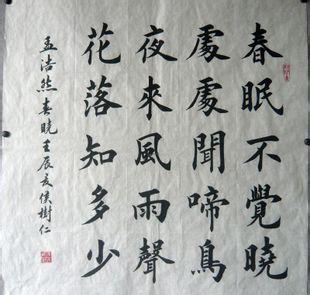 春眠不覺曉
處處聞啼鳥
夜來風雨聲
花落知多少
孟浩然春曉壬辰友侯樹仁